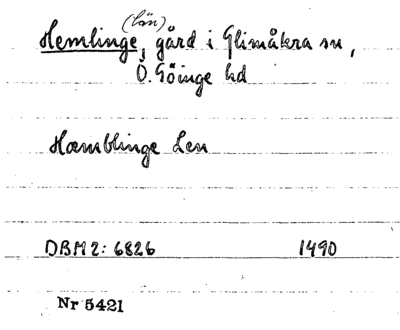 (län)
Hemlinge, gård i Glimåkra sn,
Ö. Göinge hd
Hæmblinge Len
DBM2: 6826 1490
Nr 5421